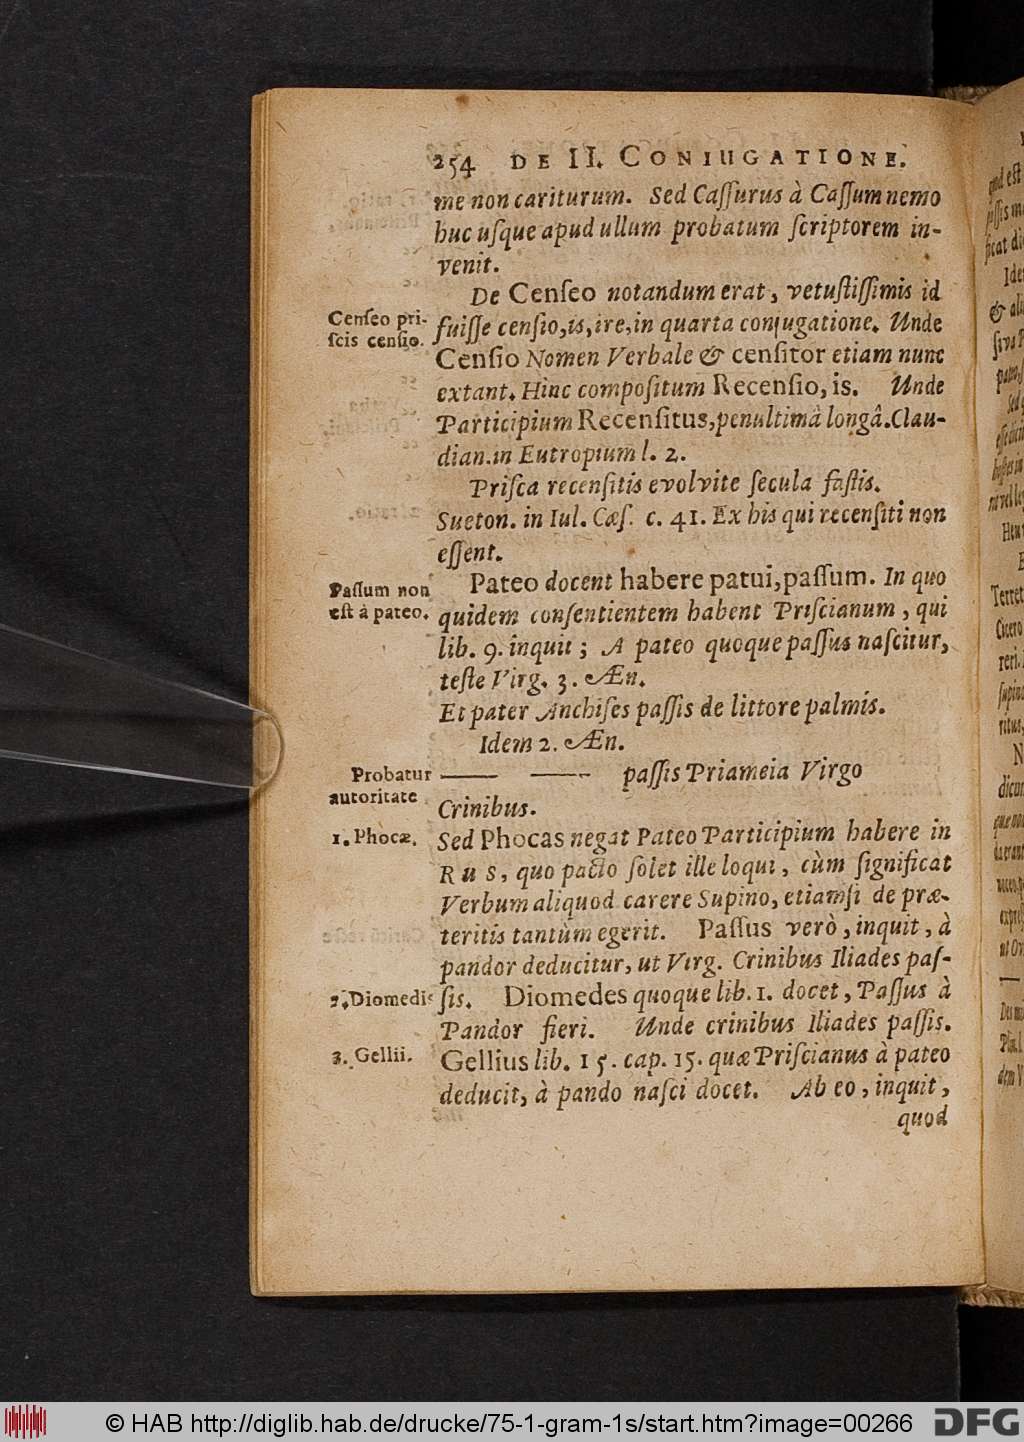 254 DE II. CONIUGATIONE.
me non cariturum. Sed Caſſurus à Caſſum nemo
huc uſque apud ullum probatum ſcriptorem in-
venit.
De Cenſeo notandum erat, vetuſtiſſimis id
Cenſeo pri-
ſcis cenſio.
fuiſſe cenſio, is, ire, in quarta conjugatione. Unde
Cenſio Nomen Verbale & cenſitor etiam nunc
extant. Hinc compoſitum Recenſio, is. Unde
Participium Recenſitus, penultimâ longâ. Clau-
dian. in Eutropium l. 2.
Priſca recenſitis evolvite ſecula faſtis.
Sueton. in Iul. Cæſ. c. 41. Ex his qui recenſiti non
eſſent.
Paſſum non
eſt à pateo.
Pateo docent habere patui, paſſum. In quo
quidem conſentientem habent Priſcianum, qui
lib. 9. inquit; A pateo quoque paſſus naſcitur,
teſte Virg. 3. Æn.
Et pater Anchiſes paſſis de littore palmis.
Idem 2. Æn.
Probatur
autoritate
—— —— paſſis Priameia Virgo
Crinibus.
1. Phocæ.
Sed Phocas negat Pateo Participium habere in
RUS, quo pacto ſolet ille loqui, cùm ſignificat
Verbum aliquod carere Supino, etiamſi de præ-
teritis tantùm egerit. Paſſus verò, inquit, à
pandor deducitur, ut Virg. Crinibus Iliades paſ-
2. Diomedis
ſis. Diomedes quoque lib. 1. docet, Paſſus à
Pandor fieri. Unde crinibus Iliades paſſis.
3. Gellii.
Gellius lib. 15. cap. 15. quæ Priſcianus à pateo
deducit, à pando naſci docet. Ab eo, inquit,
quod
© HAB http://diglib.hab.de/drucke/75-1-gram-1s/start.htm?image=00266 DFG